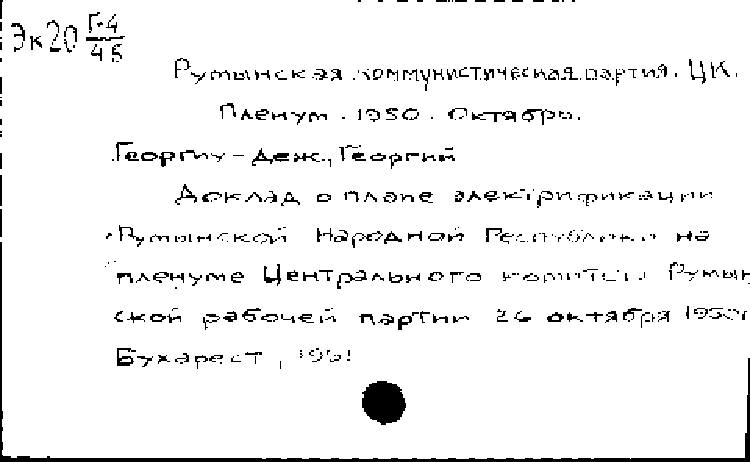 Эк20 Г-4/45
Румынская коммунистическая партия. ЦК.
Пленум. 1950. Октябрь.
Георгиу-Деж, Георгий
Доклад о плане электрификации
Румынской Народной Республики на
пленуме Центрального комитета Румын
ской рабочей партии 26 октября 1950г
Бухарест, 1951